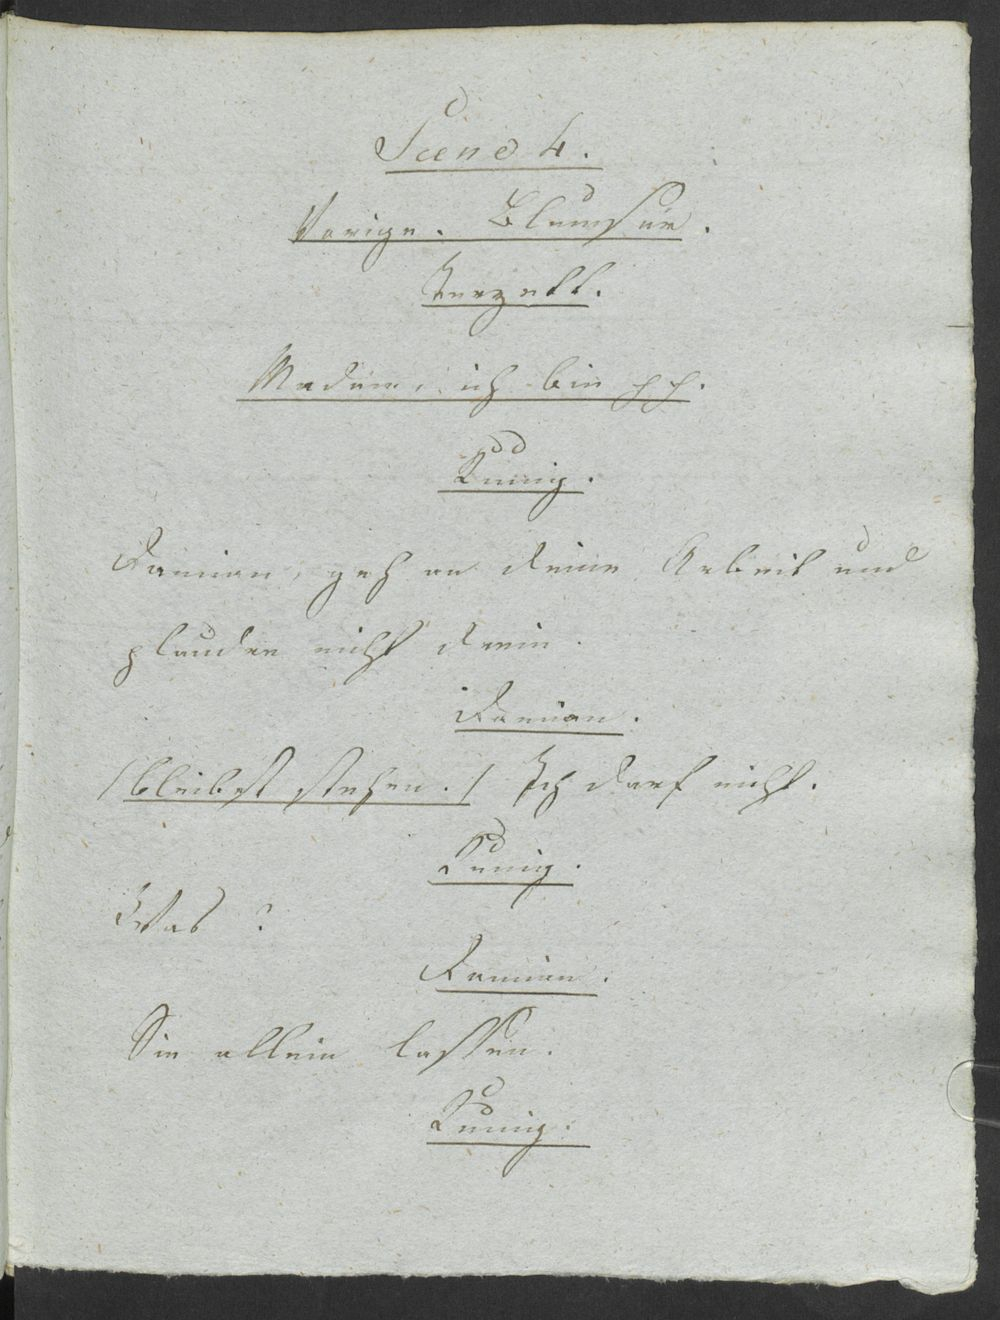 Scene 4.
Vorige. Blumsür.
Terzett.
Madame, ich bin pp.
Kunig.
Damian, geh an deine Arbeit und
plaudre nicht drein.
Damian.
/bleibst stehen./ Ich darf nicht.
Kunig.
Was?
Damian.
Sie allein lassen.
Kunig.